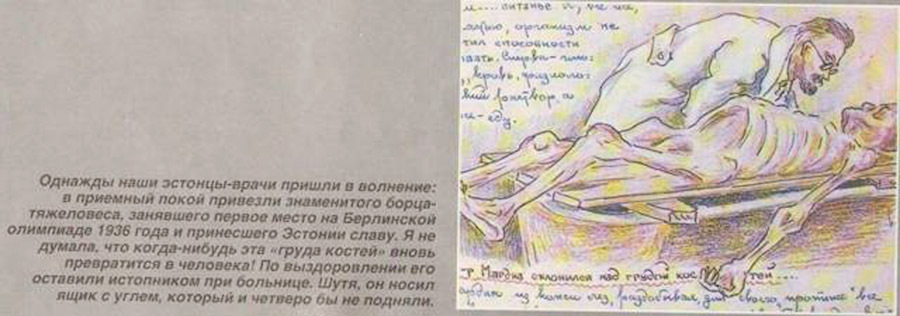 Однажды наши эстонцы-врачи пришли в волнение:
в приемный покой привезли знаменитого борца-
тяжеловеса, занявшего первое место на Берлинской
олимпиаде 1936 года и принесшего Эстонии славу. Я не
думала, что когда-нибудь эта «груда костей» вновь
превратится в человека! По выздоровлении его
оставили истопником при больнице. Шутя, он носил
ящик с углем, который и четверо бы не подняли.
организм не
способности
кровь,
еду.
склонился над грудой кос тей...
из